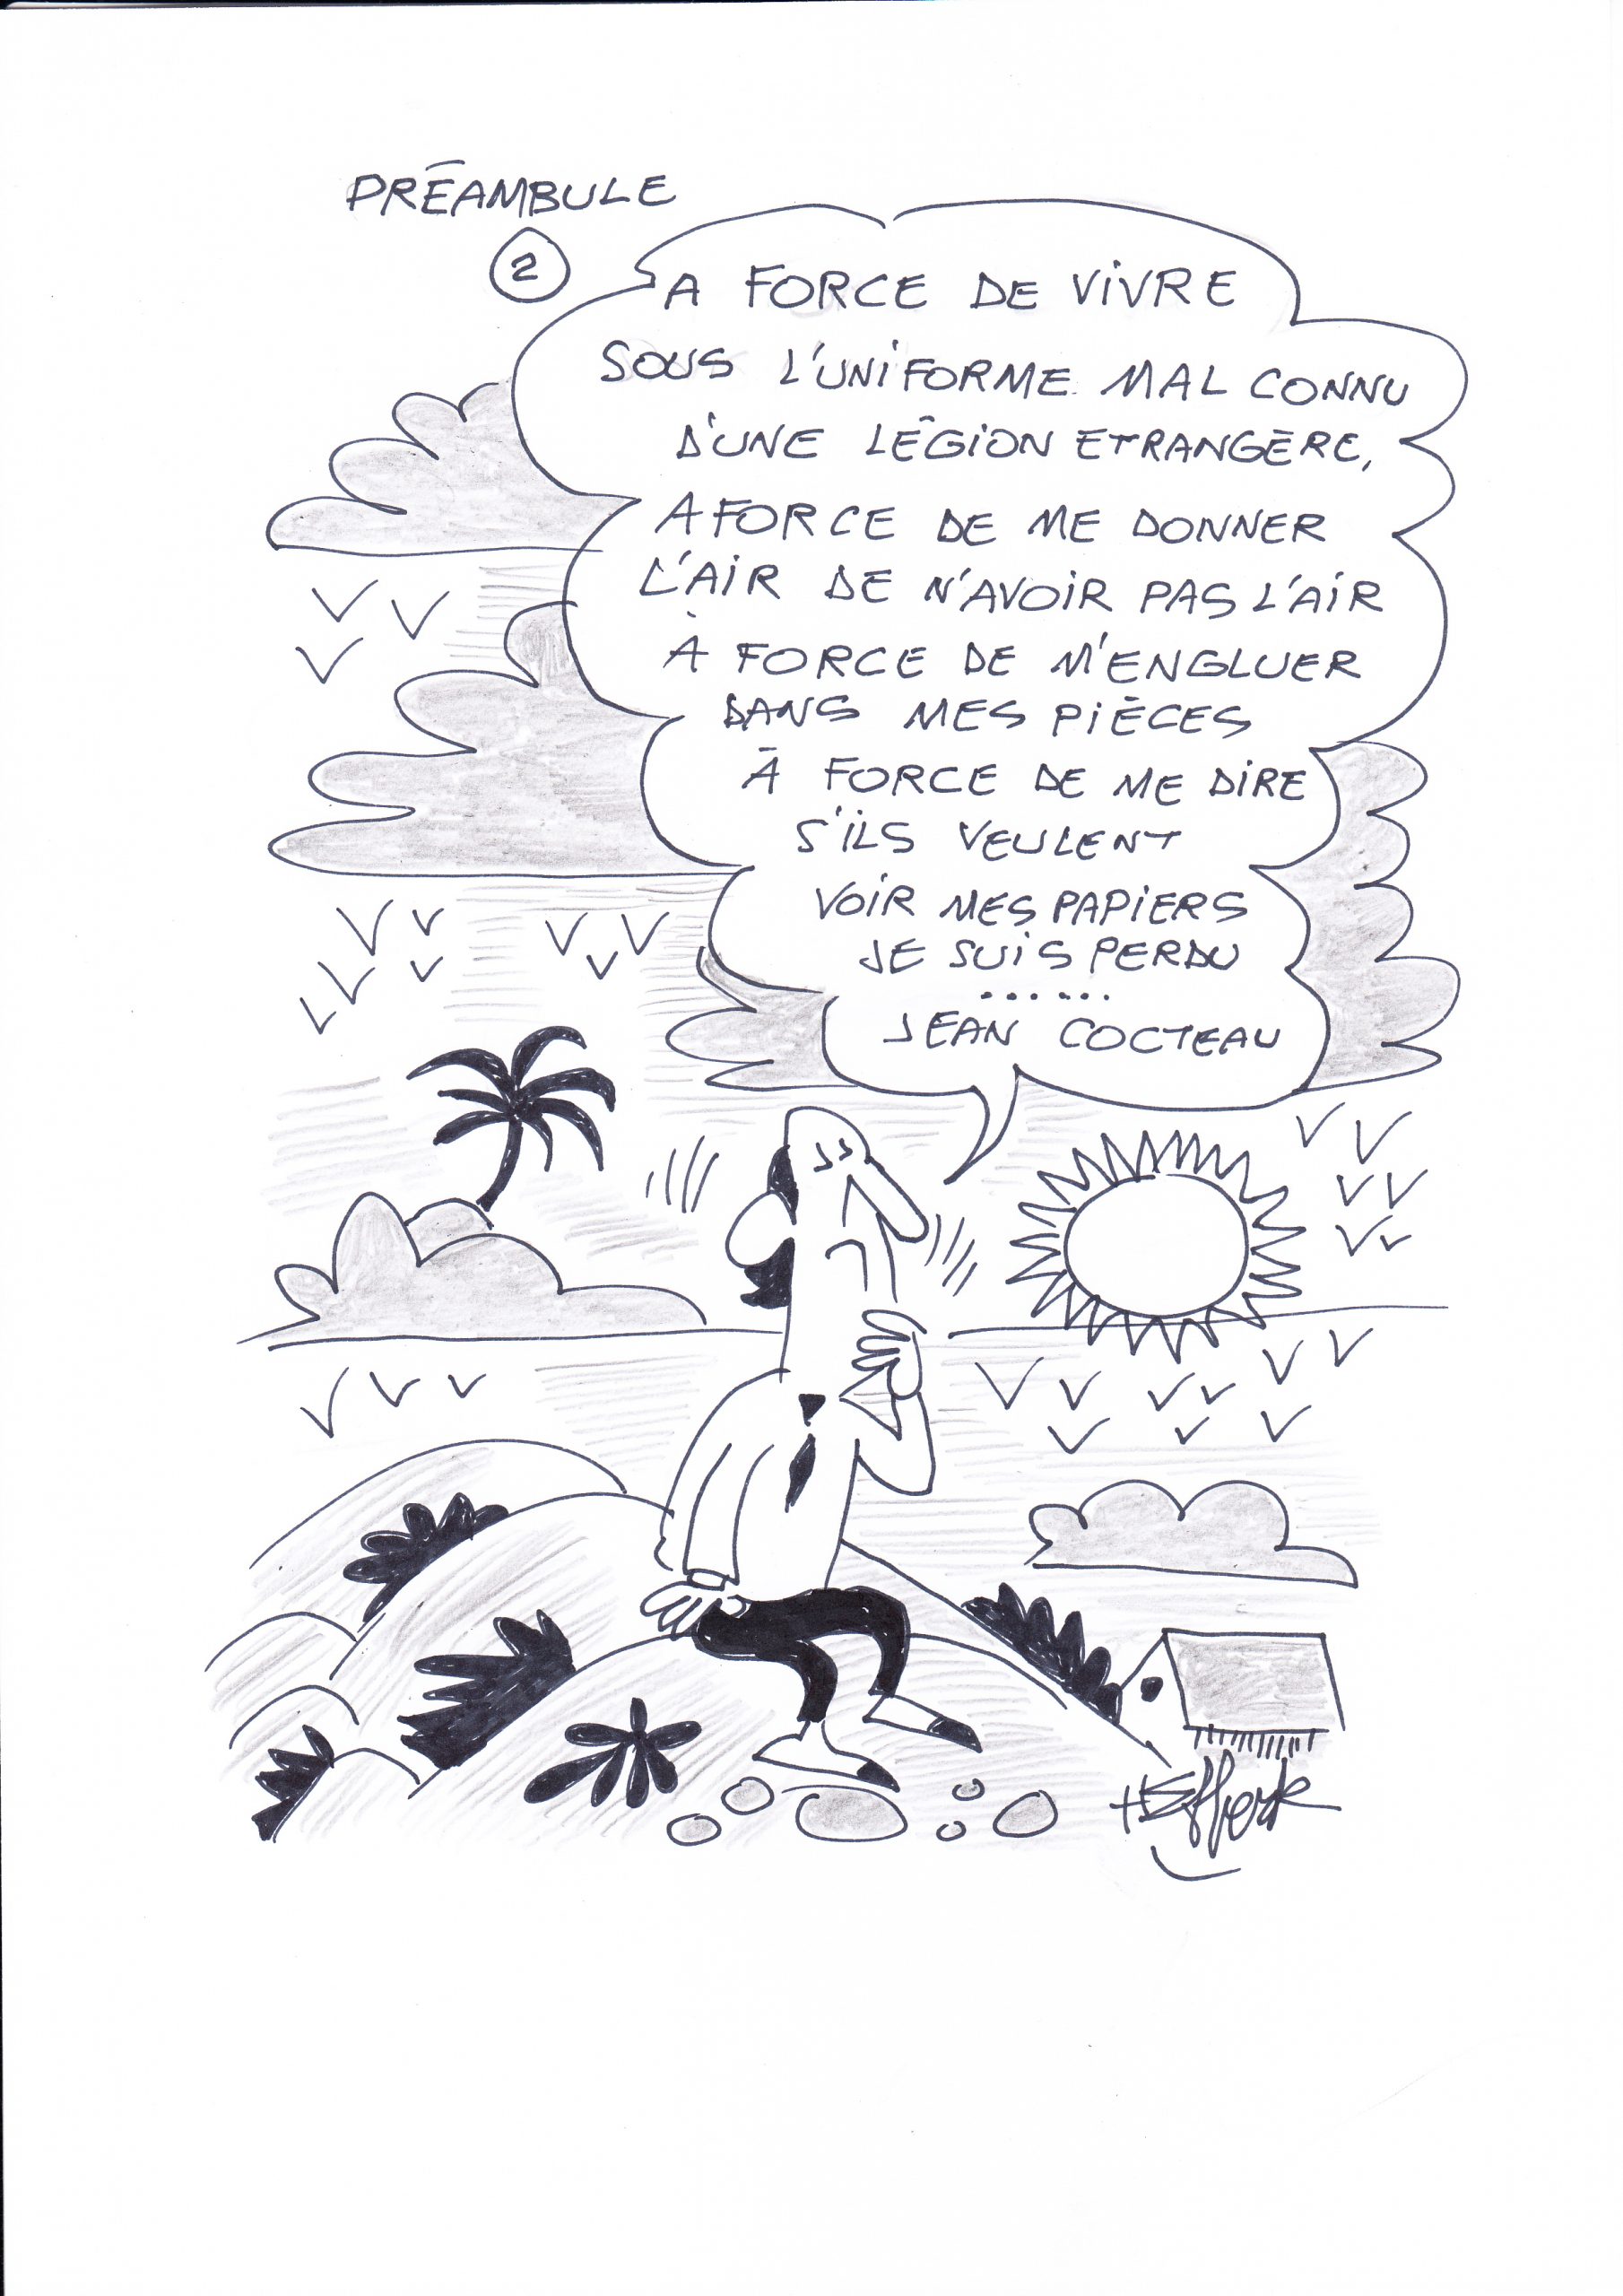 PRÉAMBULE
2
A FORCE DE VIVRE
SOUS L'UNIFORME MAL CONNU
D'UNE LÉGION ETRANGÈRE,
A FORCE DE ME DONNER
L'AIR DE N'AVOIR PAS L'AIR
À FORCE DE M'ENGLUER
DANS MES PIÈCES
À FORCE DE ME DIRE
S'ILS VEULENT
VOIR MES PAPIERS
JE SUIS PERDU
......
JEAN COCTEAU